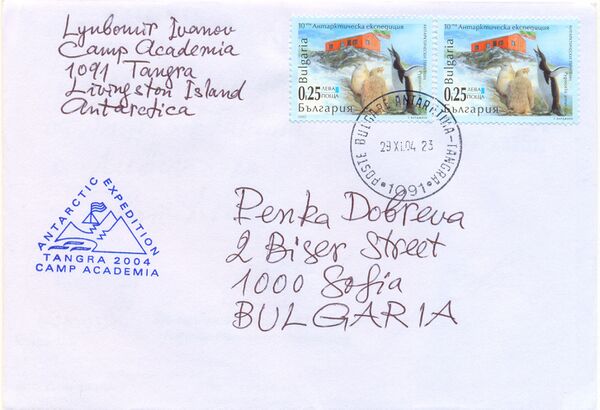 Lyubomir Ivanov
Camp Academia
1091 Tangra
Livingston Island
Antarctica
10та Антарктическа експедиция
Bulgaria
0.25 ЛЕВА
ПОЩА
БЪЛГАРИЯ
10та Антарктическа експедиция
Bulgaria
0.25 ЛЕВА
ПОЩА
БЪЛГАРИЯ
POSTE BULGARE ANTARCTICA-TANGRA
29.XI.04 23
1091
ANTARCTIC EXPEDITION
TANGRA 2004
CAMP ACADEMIA
Penka Dobreva
2 Biser Street
1000 Sofia
BULGARIA